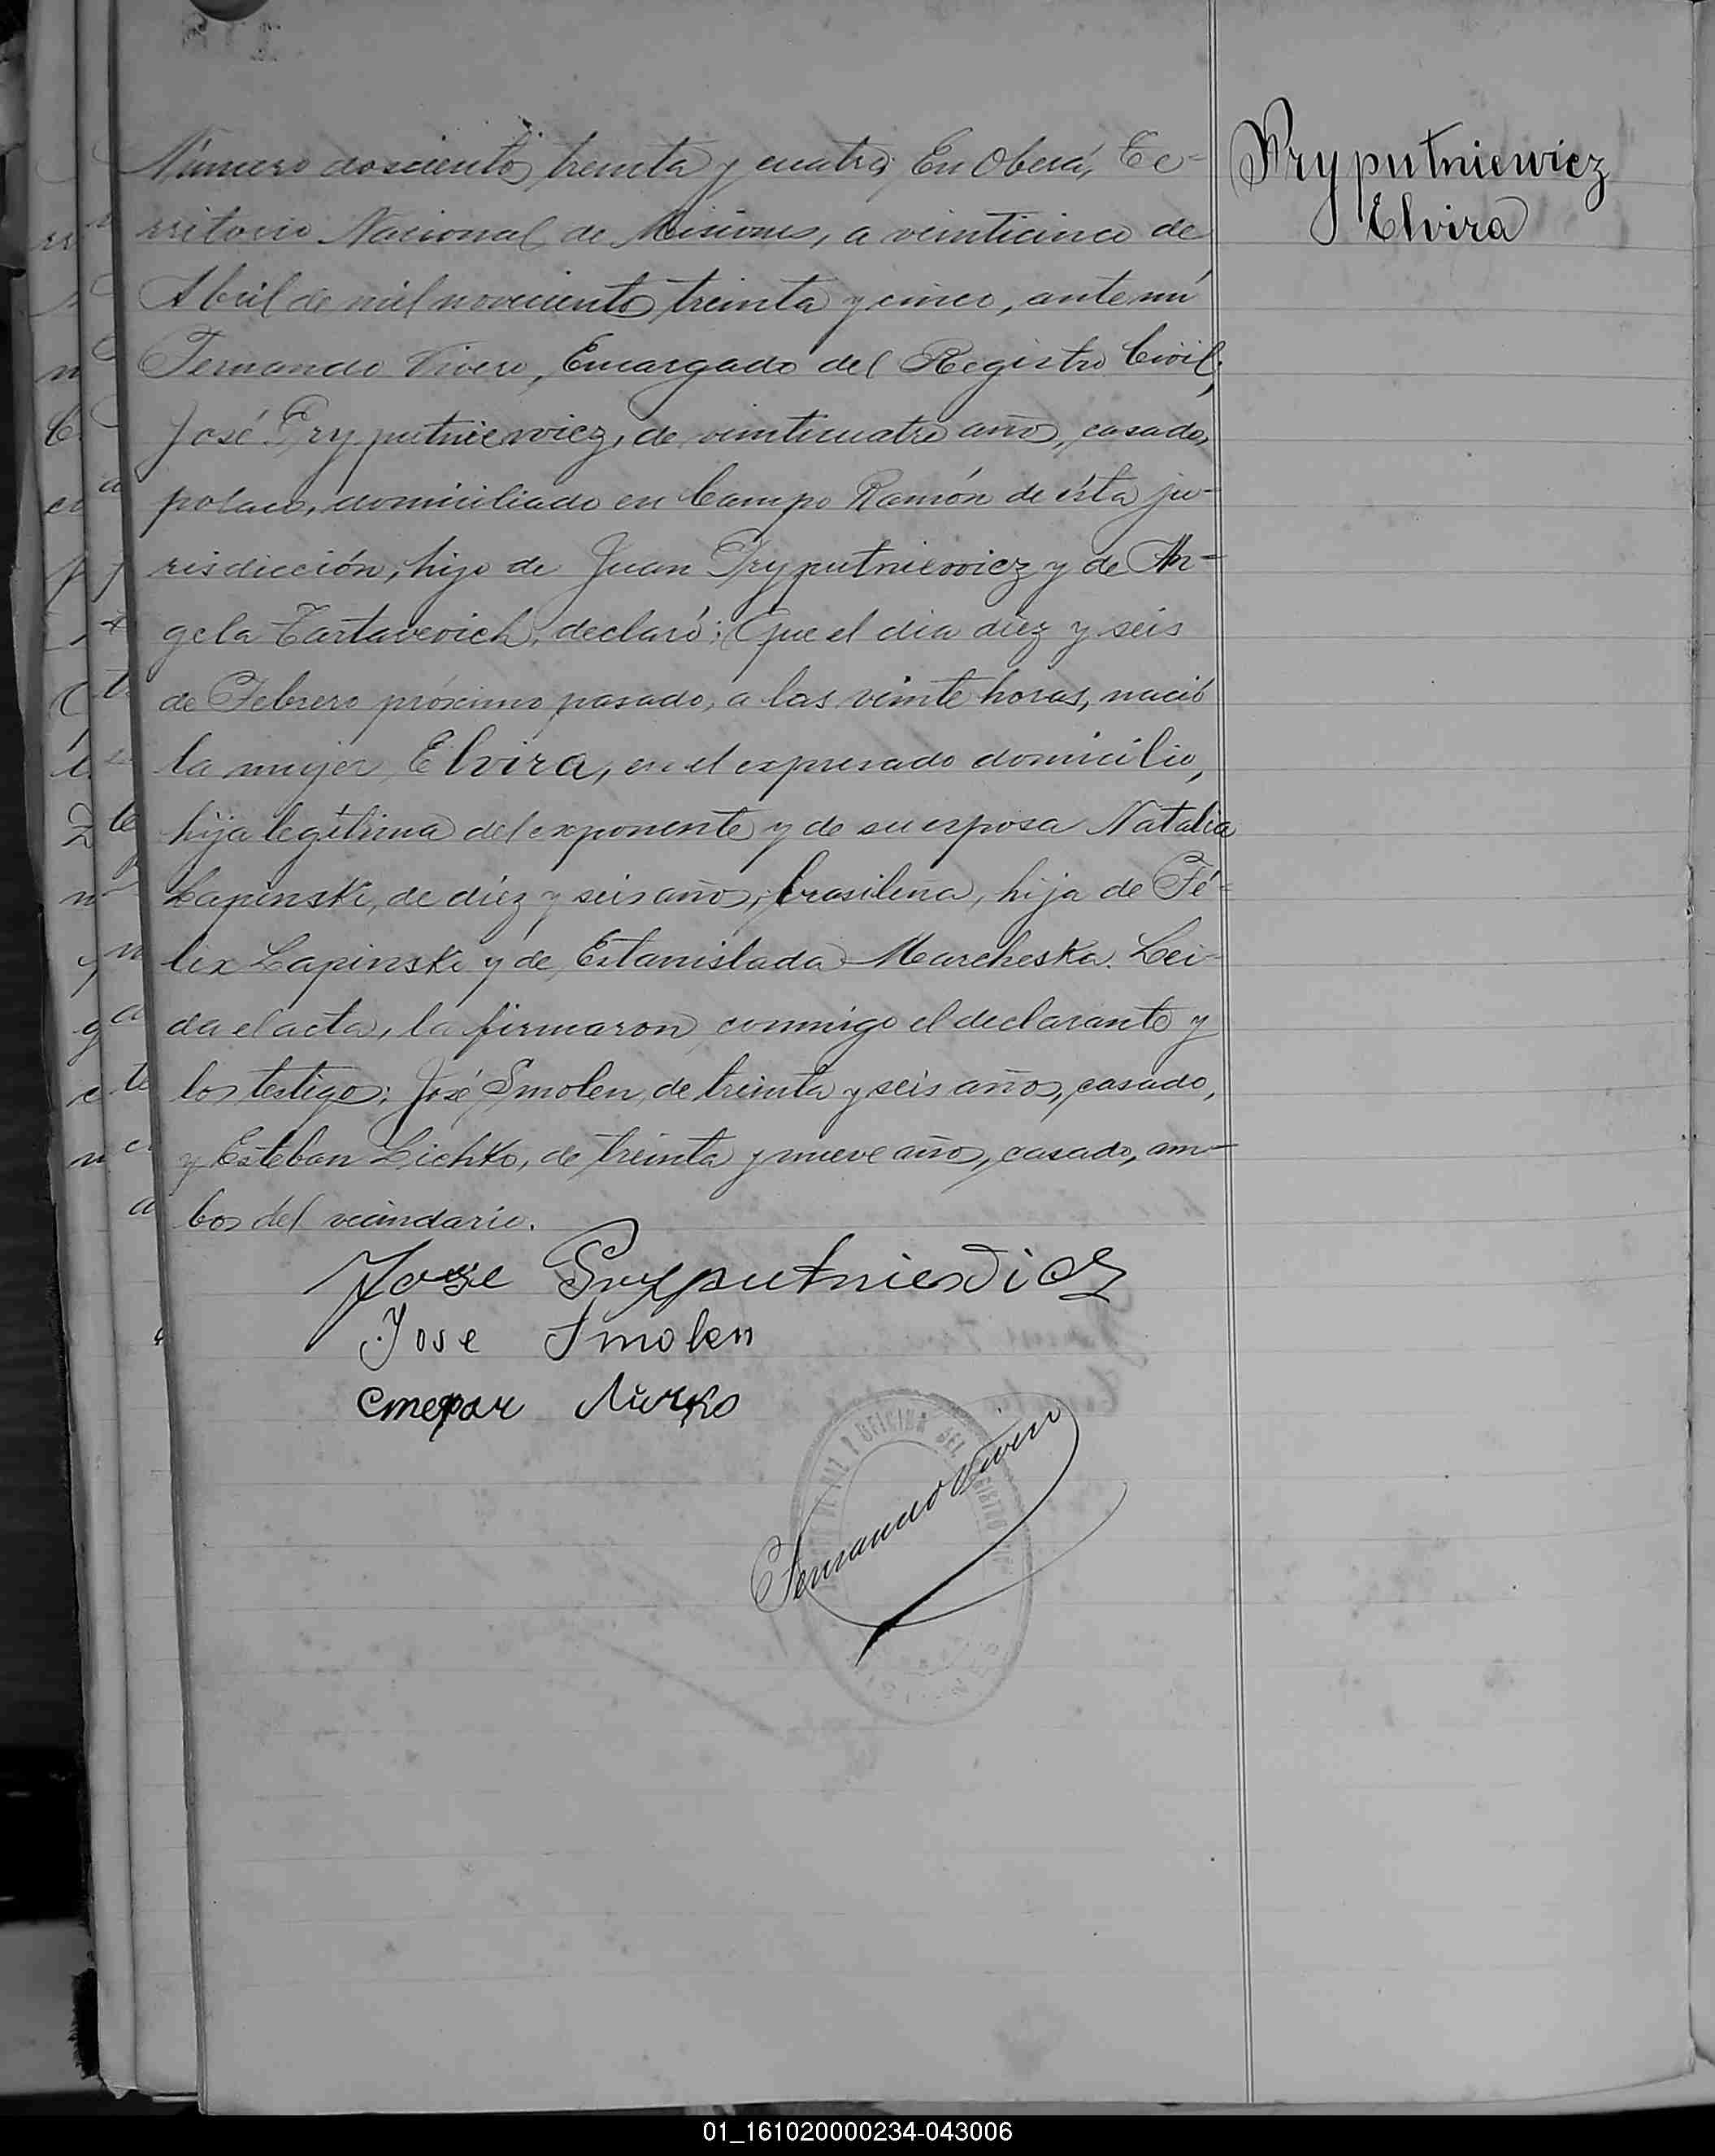 Número doscientos treinta y cuatro; En Oberá, Te-
rritorio Nacional de Misiones, a veinticinco de
Abril de mil novecientos treinta y cinco, ante mí
Fernando Vivero, Encargado del Registro Civil;
José Pryputniewicz, de veinticuatro años, casado,
polaco, domiciliado en Campo Ramón de ésta ju-
risdicción, hijo de Juan Pryputniewicz y de An-
gela Tartavevich, declaró: Que el dia diez y seis
de Febrero próximo pasado, a las veinte horas, nació
la mujer Elvira, en el expresado domicilio,
hija legítima del exponente y de su esposa Natalia
Lapinski, de diez y seis años, brasileña, hija de Fé-
lix Lapinski y de Estanislada Marcheska. Lei-
da el acta, la firmaron conmigo el declarante y
los testigos: José Smolen, de treinta y seis años, casado,
y Esteban Lichko, de treinta y nueve años, casado, am-
bos del vecindario.
Pryputniewicz
Elvira
Jose Pryputniewicz
Jose Smolen
Стефан Личко
Fernando Vivero
OFICINA DEL
01_161020000234-043006